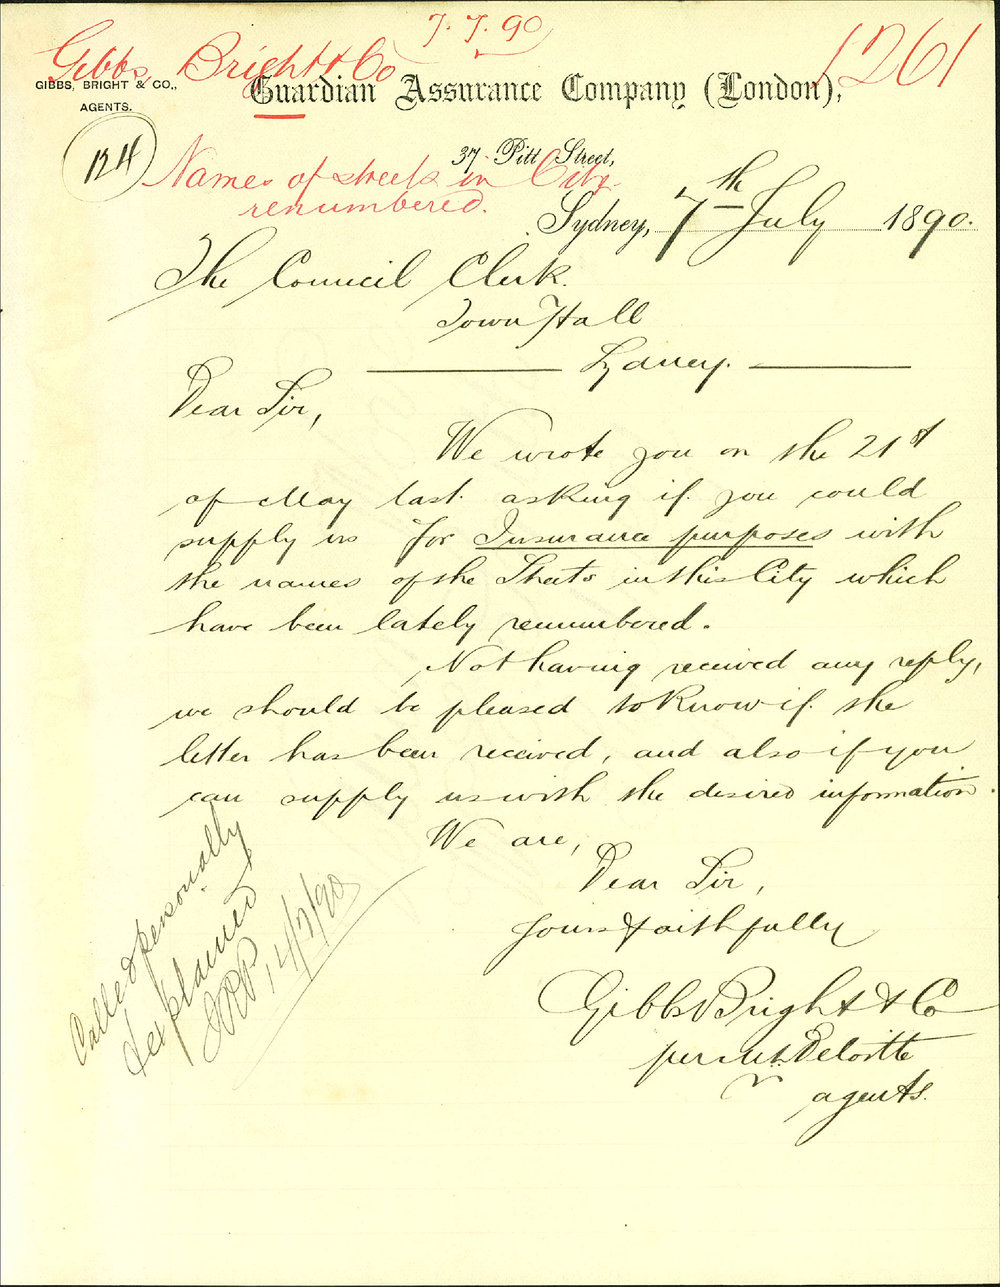 7.7.90
Gibbs, Bright & Co
1261
GIBBS, BRIGHT & CO.,
AGENTS.
Guardian Assurance Company (London),
124
37 Pitt Street,
Names of streets in City
renumbered.
Sydney, 7th July 1890.
The Council Clerk.
Town Hall
Sydney.
Dear Sir,
We wrote you on the 21st
of May last asking if you could
supply us for Insurance purposes with
the names of the Streets in this City which
have been lately renumbered.
Not having received any reply,
we should be pleased to know if the
letter has been received, and also if you
can supply us with the desired information.
We are,
Dear Sir,
Yours faithfully
Gibbs Bright & Co
per Deloitte
agents.
Called personally
& explained
14/7/90